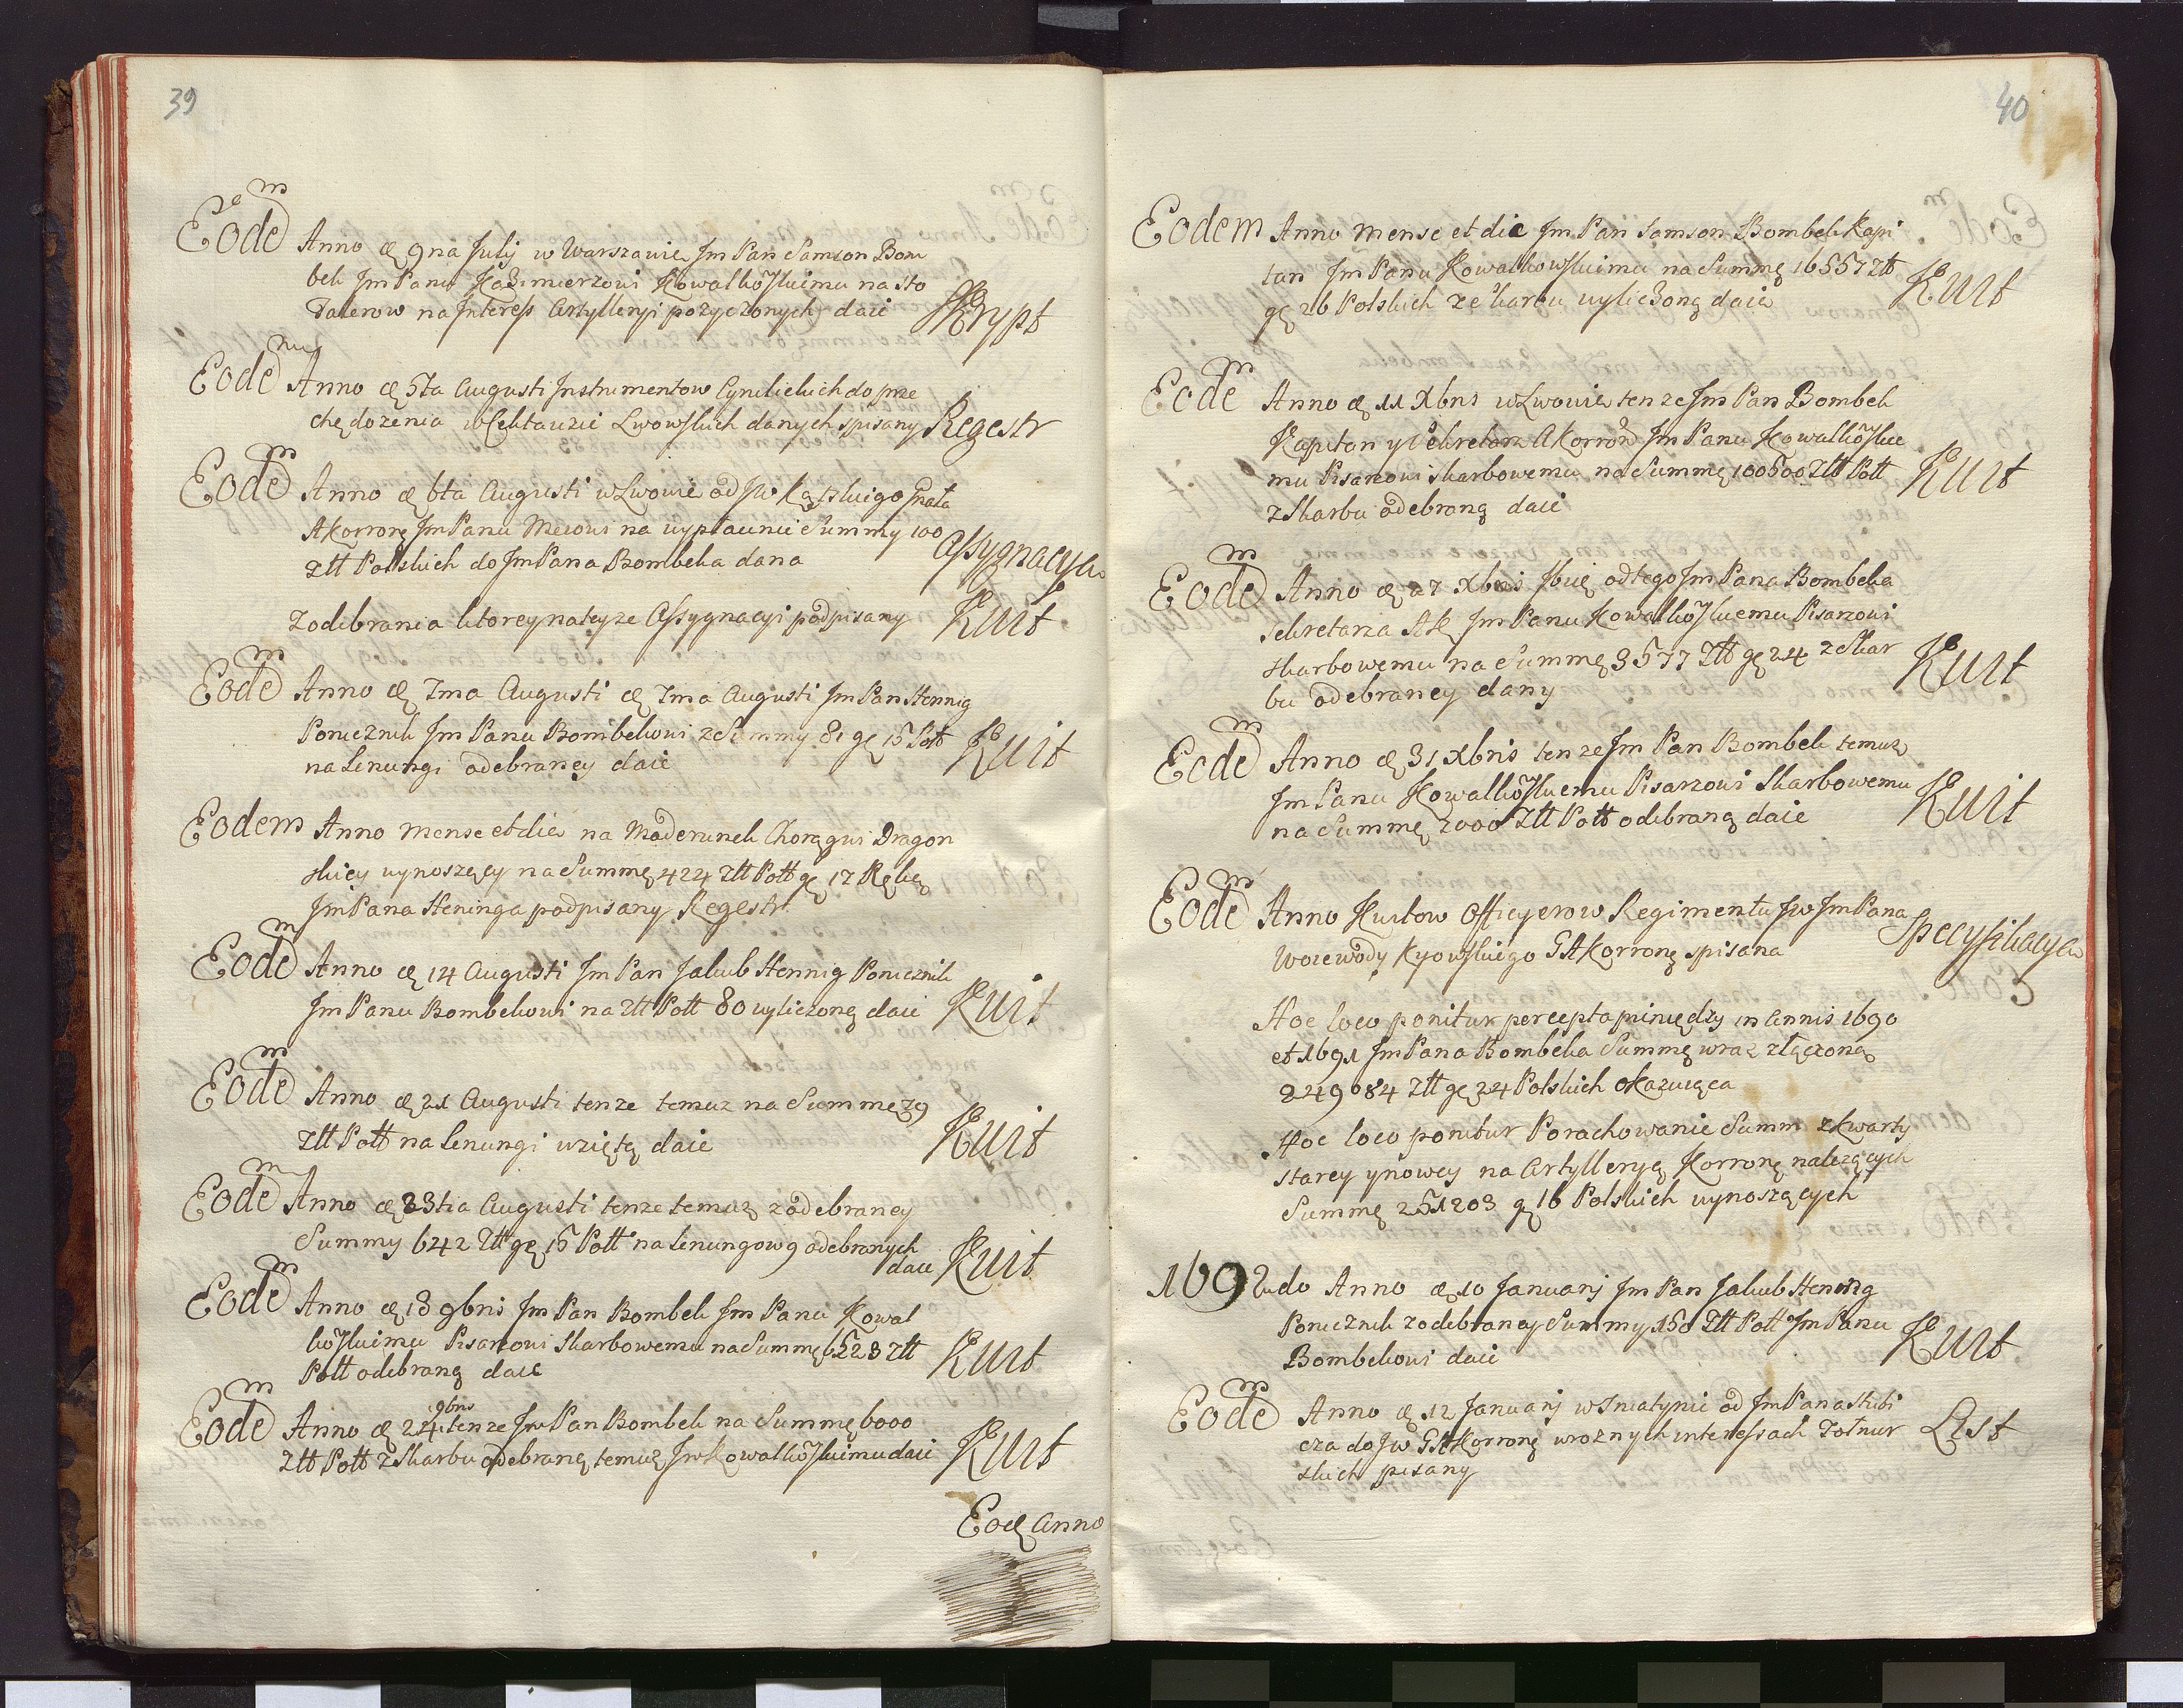 39
Eodem Anno d. 9na Julij w Warszawie Jm Pan Samson Bom
bek Jm Panu Kazimierzowi Kowalkowskiemu na sto
Talerow na Interess Artylleryi pozyczonych daie Skrypt
Eodem Anno d. 5ta Augusti Instrumentow Cyrulickich do prze
chędozenia w Cekauzie Lwowskich danych spisany Regestr
Eodem Anno d. 6ta Augusti w Lwowie od JW Kątskiego Gnała
A Korronę Jm Panu Meiowi na wypłacenie Summy 100
Złł Polskich do Jm Pana Bombeka dana Assygnacya
Z odebrania ktorey na teyze Assygnacyi podpisany Kwit
Eodem Anno d. 7ma Augusti d. 7ma Augusti Jm Pan Hennig
Porucznik Jm Panu Bombekowi z Summy 81 gę 15 Poł
na Lenungi odebraney daie Kwit
Eodem Anno mense et die na Moderunek Chorągwi Dragon
skiey wynoszący na Summę 424 Złł Poł gę 12 Ręką
Jm Pana Heninga podpisany Regestr
Eodem Anno d. 14 Augusti Jm Pan Jakub Hennig Porucznik
Jm Panu Bombekowi na Złł Poł 80 wyliczonę daie Kwit
Eodem Anno d. 21 Augusti tenze temuz na Summę 79
Złł Poł na Lenungi wziętą daie Kwit
Eodem Anno d. 23tia Augusti tenze temuz z odebraney
Summy 642 Złł gę 15 Poł na Lenungow 9 odebranych
daie Kwit
Eodem Anno d. 18 9bris Jm Pan Bombek Jm Panu Kowal
kowskiemu Pisarzowi Skarbowemu na Summę 6523 Złł
Poł odebraną daie Kwit
9bris
Eodem Anno d. 24 tenze Jm Pan Bombek na Summę 6000
Złł Poł z Skarbu odebraną temuz Jm Kowalkowskiemu daie Kwit
Eod Anno
40
Eodem Anno mense et die Jm Pan Samson Bombek Kapi
tan Jm Panu Kowalkowskiemu na Summę 16557 Złł
gę 26 Polskich ze Skarbu wyliczoną daie Kwit
Eodem Anno d. 11 Xbris w Lwowie tenze Jm Pan Bombek
Kapitan y Sekretarz A Korron Jm Panu Kowalkowskie
mu Pisarzowi skarbowemu na Summę 100600 Złł Poł
z Skarbu odebraną daie Kwit
Eodem Anno d. 27 Xbris od tego Jm Pana Bombeka
Sekretarza AK Jm Panu Kowalkowskiemu Pisarzowi
skarbowemu na Summę 3577 Złł gę 24 z Skar
bu odebraney dany Kwit
Eodem Anno d. 31 Xbris tenze Jm Pan Bombek temuz
Jm Panu Kowalkowskiemu Pisarzowi Skarbowemu
na Summę 2000 Złł Poł odebraną daie Kwit
Eodem Anno Kurtow Officyerow Regimentu JW Jm Pana
Woiewody Kyowskiego GA Korronę spisana Specyfikacya
Hoc loco ponitur percepta pieniędzy in Annis 1690
et 1691 Jm Pana Bombeka Summę wraz złączoną
249084 Złł gę 24 Polskich okazuiąca
Hoc loco ponitur Porachowanie Summ z kwarty
starey y nowey na Artylleryą Korronę nalezących
Summę 251203 gę 16 Polskich wynoszących
1692do Anno d. 10 Januarj Jm Pan Jakub Hening
Porucznik z odebraney Summy 150 Złł Poł Jm Panu
Bombekowi daie Kwit
Eodem Anno d. 12 Januarj w Sniatynie od Jm Pana Skibi
cza do JW GA Korronę w roznych interessach Zołnier
skich pisany List